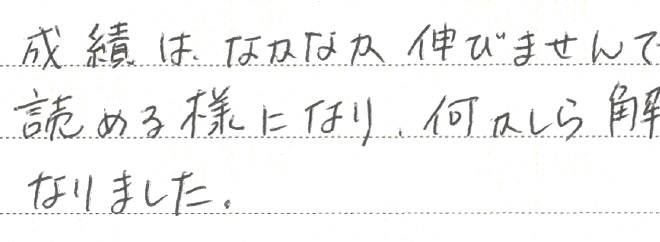 成績は、なかなか伸びませんで
読める様になり、何かしら解
なりました。